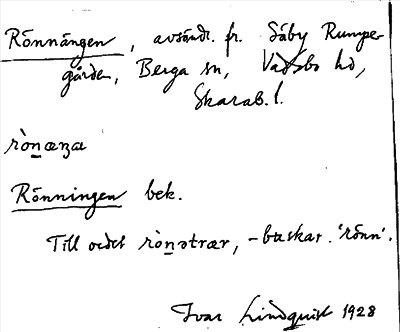 Rönnängen, avsöndr. fr. Säby Rumpe-
gården, Berga sn, Vadsbo hd,
Skarab. l.
ròn̲æŋa
Rönningen bek.
Till ordet ròn̲ətrær, -buskar. 'rönn'.
Ivar Lindquist 1928